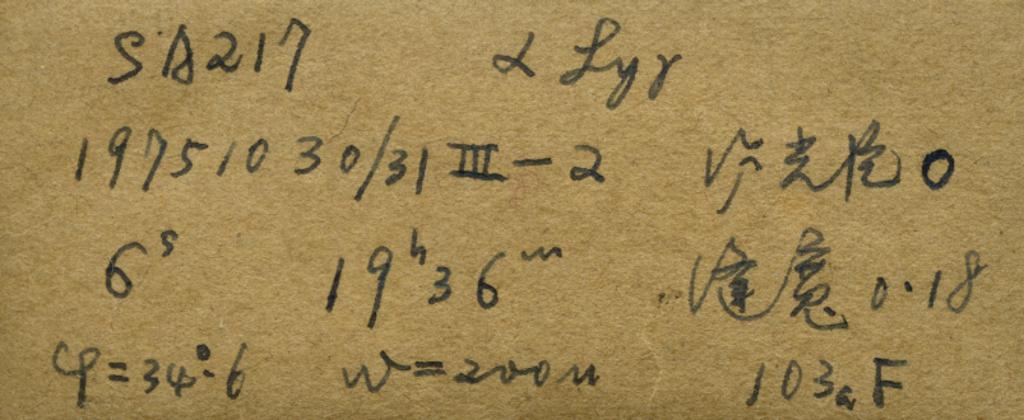 SA217 α Lyr
1975 10 30/31 III-2 阶光 0
6ˢ 19ʰ36ᵐ 缝宽 0.18
φ=34°.6 w=200μ 103aF